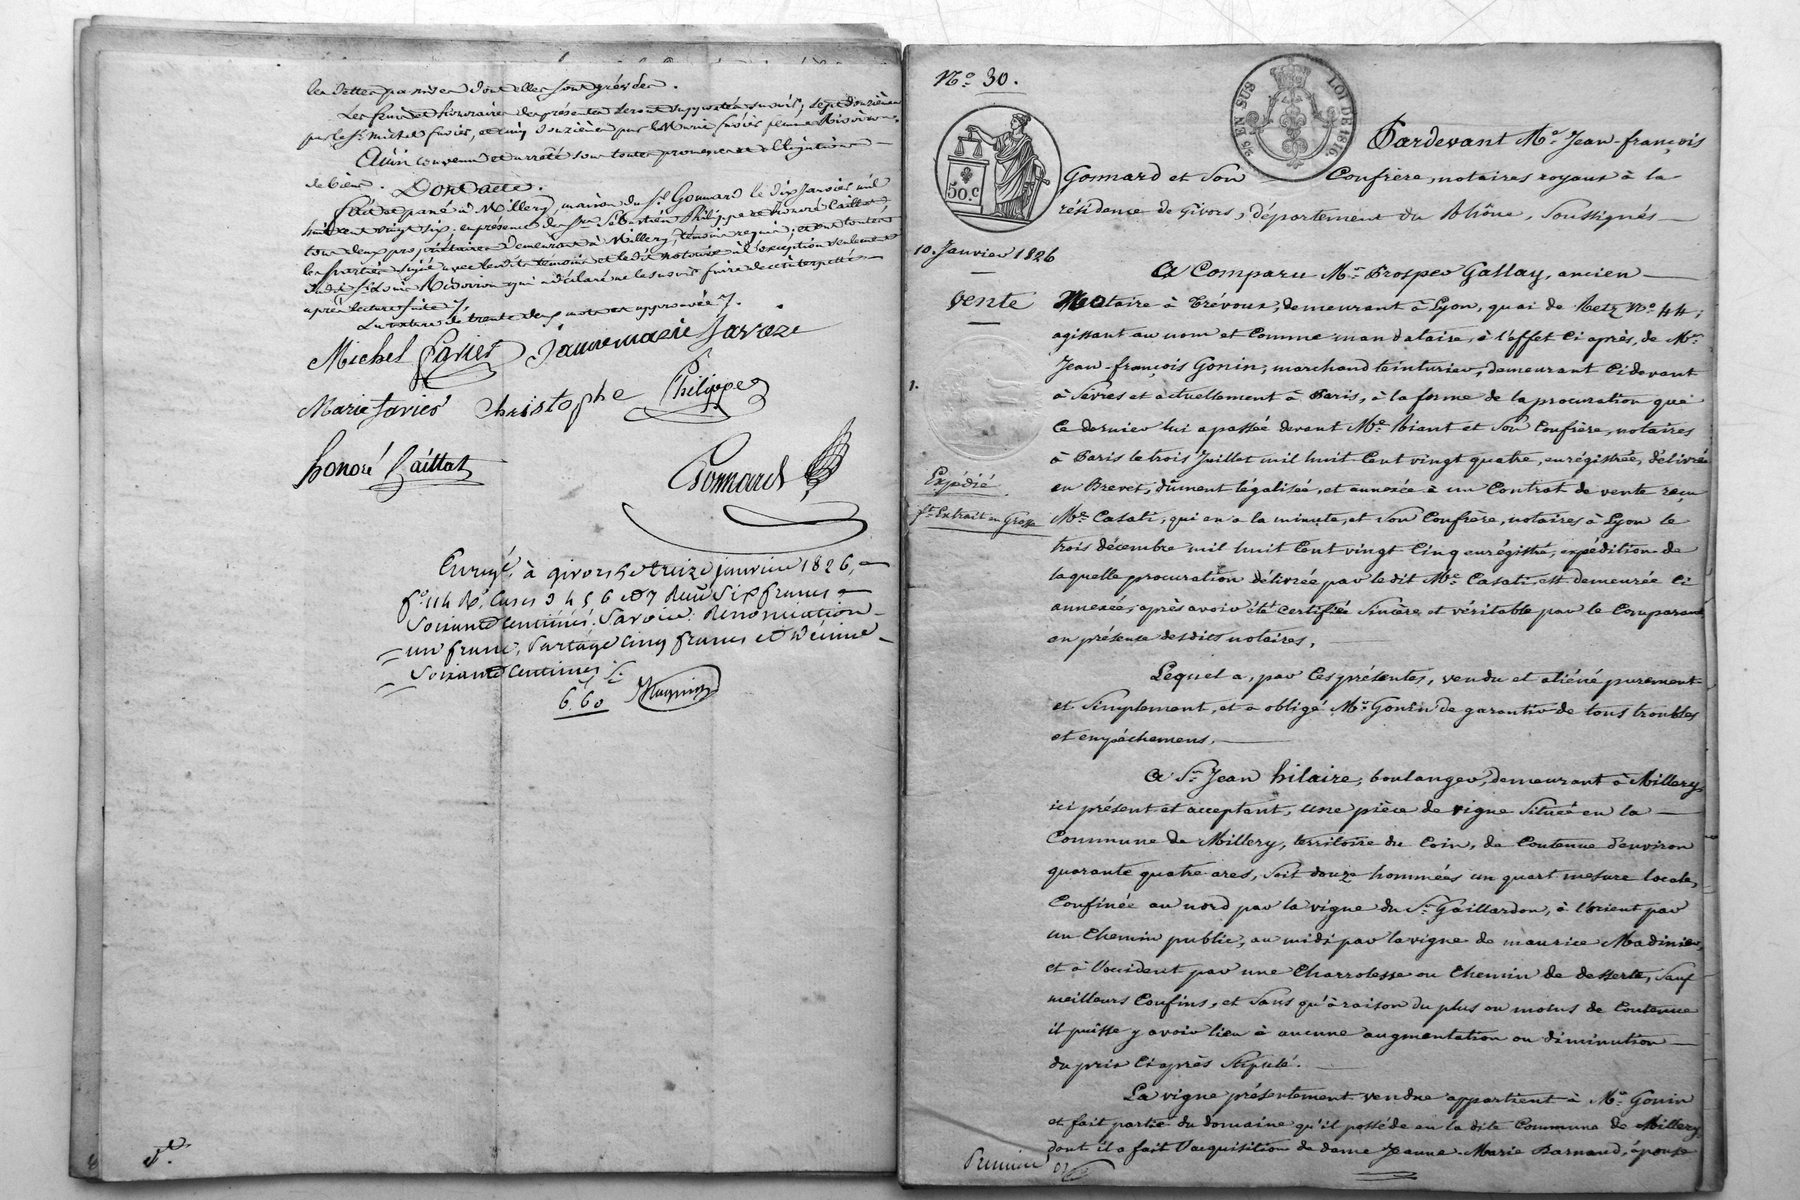 les dettes passives dont elles sont grévées.
Les frais et honoraires des présentes seront supportés savoir; sept douzièmes
par le Sr. Michel favier, et cinq douzièmes par la Marie favier femme
Ainsi convenu et arrêté sous toutes promesses et obligations
de biens. Dont acte.
fait et passé à Millery, maison du Sr. Gonnard le dix Janvier mil
huit cent vingt six; en présence des Srs. Sébastien Philippe et honoré Caillat
tous deux propriétaires demeurant à Millery, témoins requis; et ont toutes
les parties signé avec lesdits témoins et ledit notaire à l'exception seulement
dudit Sr. Louis qui a déclaré ne le savoir faire de ce interpellé
après lecture faite
La rature de trente deux mots est approuvée
Michel favier Jeanne marie favier
Marie favier Christophe Philippe
honoré Caillat
Gonnard
Enregé. à givors le treize janvier 1826,
fo. 114 Ro. Cases 3 4 5 6 et 7 Reçu Six francs
Soixante centimes. Savoir: Renonciation
un franc, Partage Cinq francs et Décime
Soixante Centimes
6, 60
No. 30.
25 EN SUS LOI DE 1816.
50. C
Pardevant Me. Jean-françois
Gonnard et Son Confrère, notaires royaux à la
résidence de Givors, département du Rhône, Soussignés
10. Janvier 1826
A Comparu Mr. Prosper Gallay, ancien
vente
Notaire à Trévoux, demeurant à Lyon, quai de Retz No. 44;
agissant au nom et Comme mandataire, à l'effet Ci après, de Mr.
Jean-françois Gonin, marchand teinturier, demeurant Cidevant
1.
à Sèvres et actuellement à Paris, à la forme de la procuration que
Ce dernier lui a passée devant Me. Riant et Son Confrère, notaires
à Paris le trois Juillet mil huit Cent vingt quatre, enrégistrée, délivrée
Expédié
en Brevet, dûment légalisée, et annexée à un Contrat de vente reçu
ft. Extrait en Grosse
Me. Casati, qui en a la minute, et Son Confrère, notaires à Lyon le
trois décembre mil huit Cent vingt Cinq enrégistré, expédition de
laquelle procuration délivrée par ledit Me. Casati est demeurée Ci
annexée, après avoir été certifiée Sincère et véritable par le Comparant
en présence desdits notaires.
Lequel a, par Ces présentes, vendu et aliéné purement
et Simplement, et a obligé Mr. Gonin de garantir de tous troubles
et empêchemens,
A Sr. Jean hilaire, boulanger, demeurant à Millery,
ici présent et acceptant, Une pièce de vigne Située en la
Commune de Millery, territoire du Coin, de Contenue d'environ
quarante quatre ares, Soit douze hommées un quart mesure locale,
Confinée au nord par la vigne du Sr. Gaillardon, à l'orient par
un Chemin public, au midi par la vigne de maurice Madinier,
et à l'occident par une Charrolesse ou Chemin de desserte, Sauf
meilleurs Confins, et Sans qu'à raison du plus ou moins de Contenue
il puisse y avoir lieu à aucune augmentation ou diminution
du prix Ci après Stipulé.
La vigne présentement vendue appartient à Mr. Gonin
et fait partie du domaine qu'il possède en la dite Commune de Millery,
dont il a fait l'acquisition de dame Jeanne-Marie Barnaud, épouse
Premier